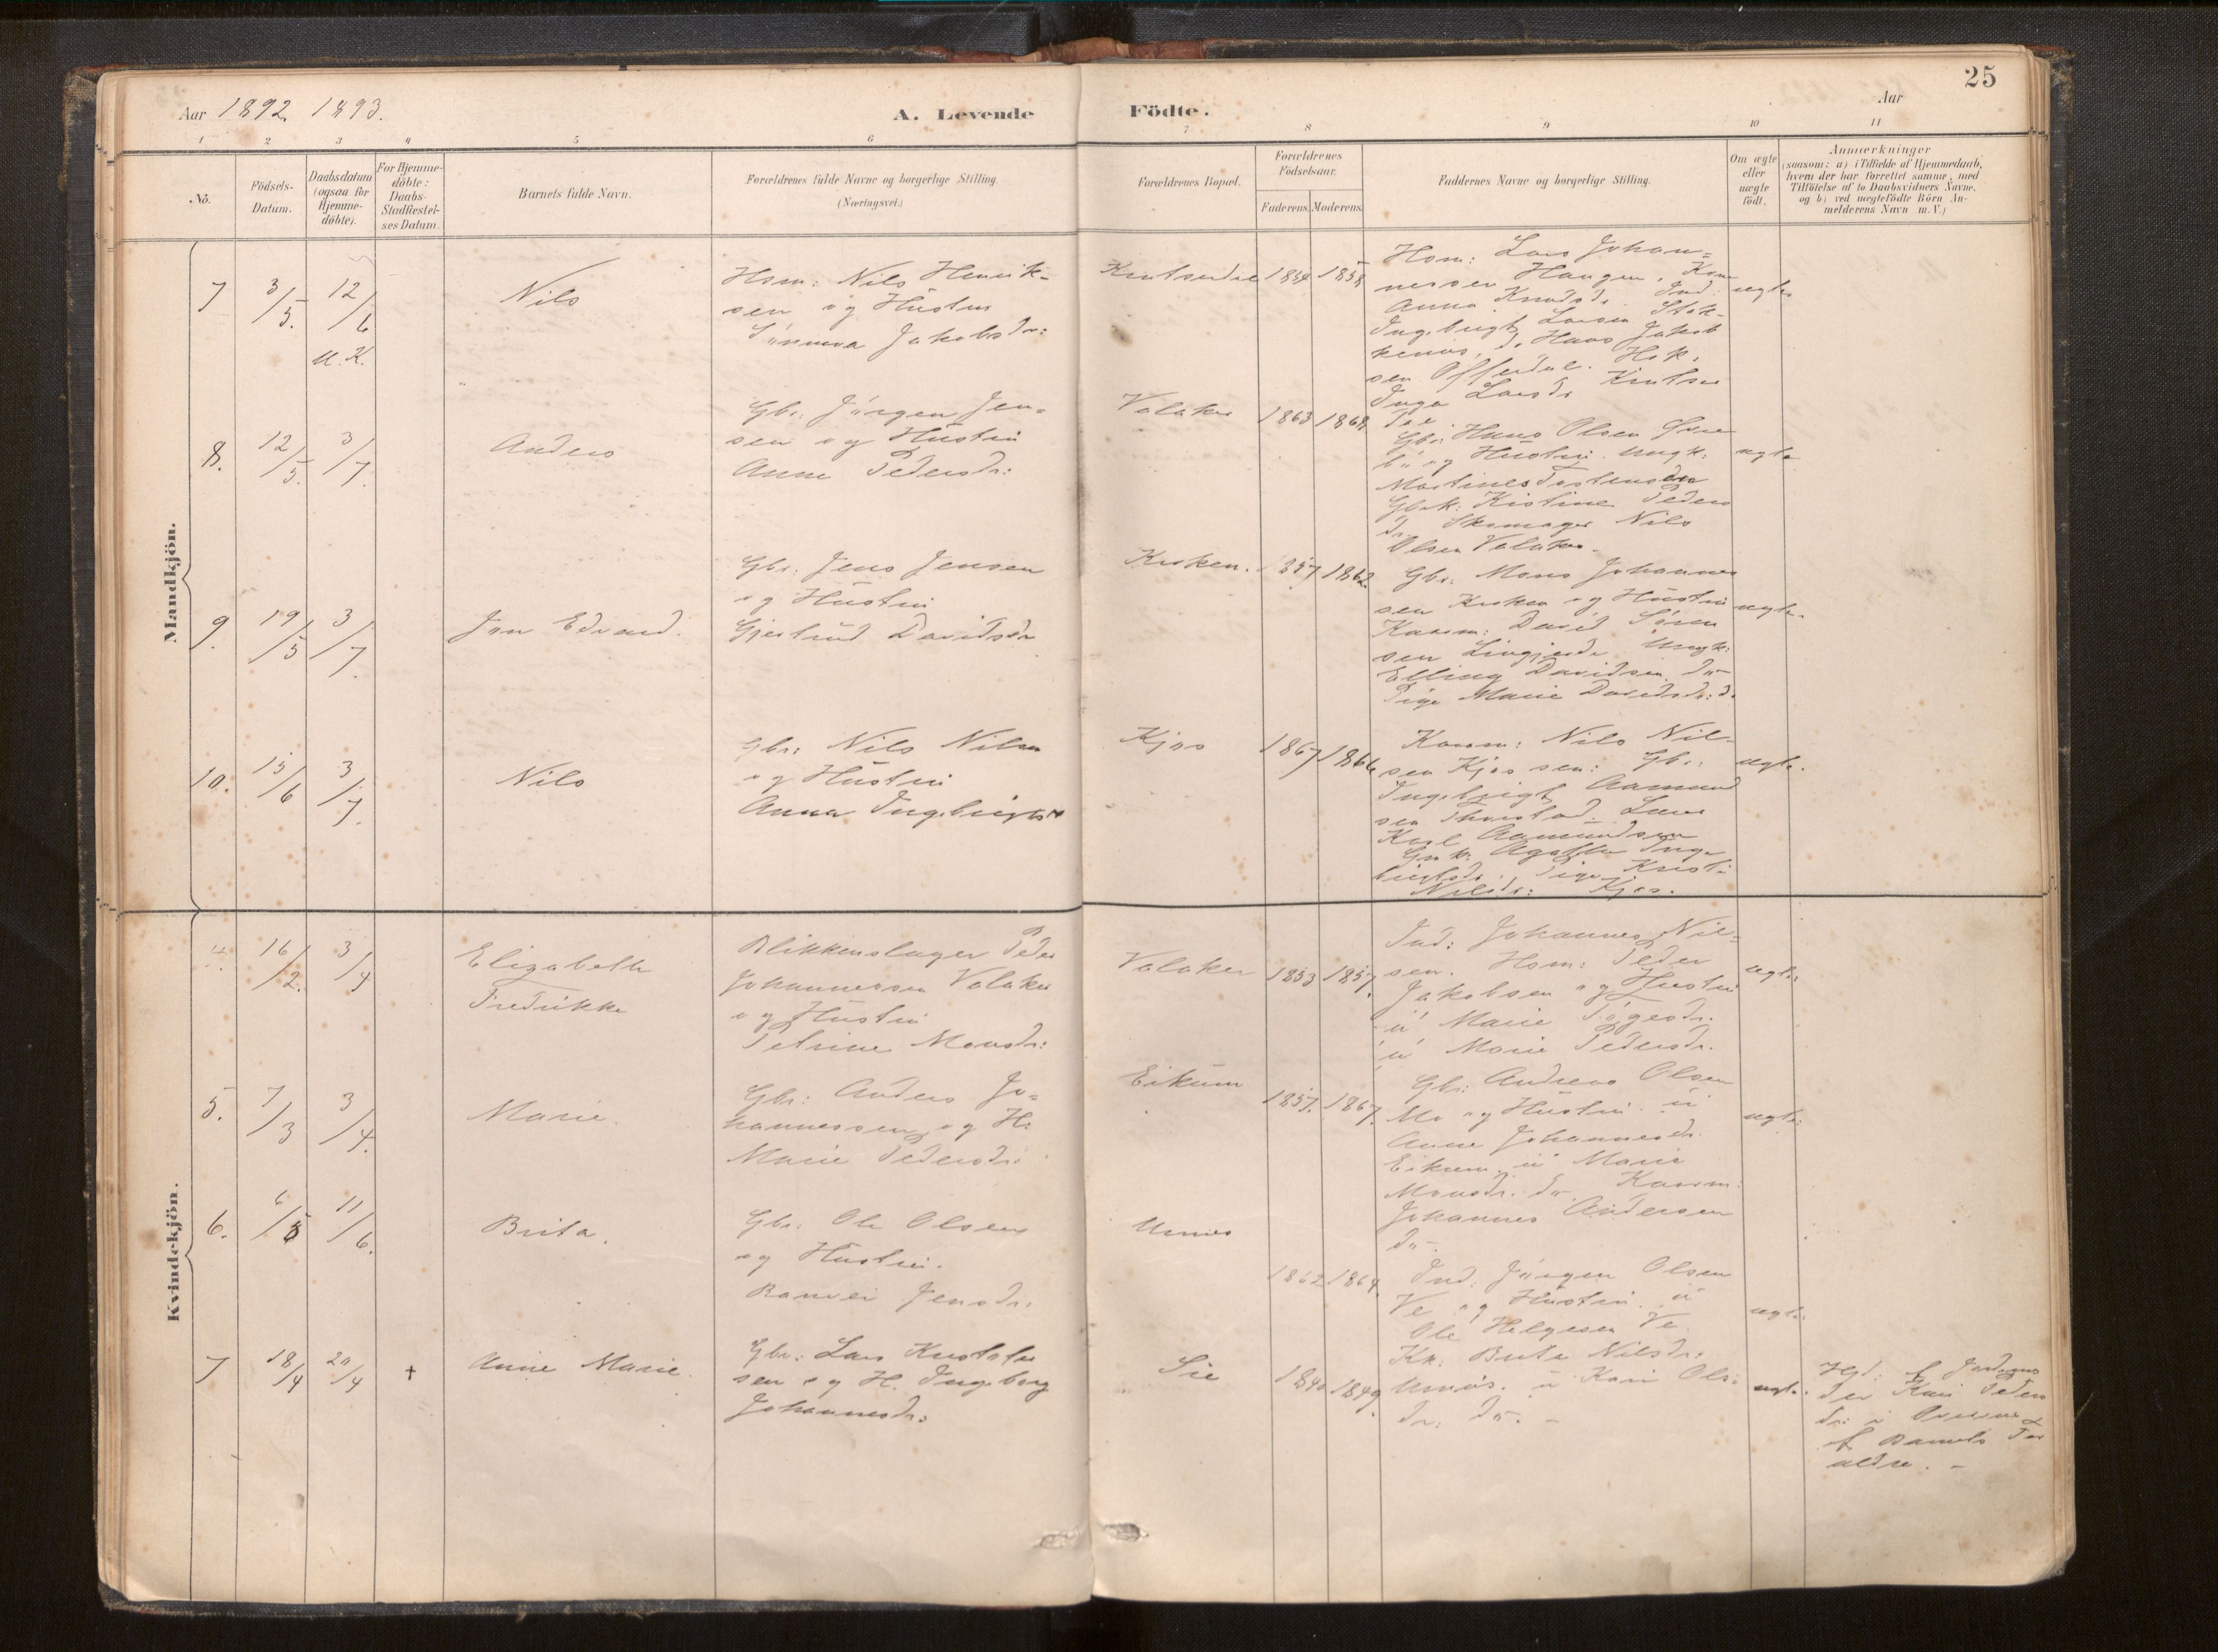 Aar 1892. 1893.
A. Levende
Födte.
Aar
25
1 2 3 4 5 6 7 8 9 10 11
No.
Födsels-
Datum.
Daabsdatum
(ogsaa for
Hjemme-
döbte).
For Hjemme-
döbte:
Daabs-
Stadfæstel-
ses Datum.
Barnets fulde Navn.
Forældrenes fulde Navne og borgerlige Stilling.
(Næringsvei.)
Forældrenes Bopæl.
Forældrenes
Födselsaar.
Faderens. Moderens.
Faddernes Navne og borgerlige Stilling.
Om ægte
eller
uægte
födt.
Anmærkninger
(saasom: a) i Tilfælde af Hjemmedaab,
hvem der har forrettet samme, med
Tilföielse af to Daabsvidners Navne.
og b) ved uægtefödte Börn An-
melderens Navn m.V.)
Mandkjön.
7 3/5. 12/6
U. K.
Nils
Hsm: Nils Henrik-
sen og Hustru
Jakobsdr:
1854 1858
Hsm: Lars Johan-
nessen Haugen.
Anna Knudsdr. Ind:
Ingebrigt Larsen
Hans Jakob
sen Offerdal.
Inga Larsdr
ægte
8. 12/5. 3/7.
Anders
Gbr. Jörgen Jen-
sen og Hustru
Anne Pedersdr:
Volaker
1863 1868
Gbr: Hans Olsen
og Hustru. Ungk:
Gbrk: Kistine Peders
dr. Skomager Nils
Olsen Volaker.
ægte
9. 19/5 3/7.
Jen Edvard.
Gbr. Jens Jensen
og Hustru
Gjertrud Davidsdr
Kroken.
1857 1862.
Gbr: Mons Johannes
sen Kroken og Hustru
Kaarm: David Sören
sen Lingjerde. Ungk:
Elling Davidsen. do-
Pige Marie Davidsdr: do.
ægte.
10. 15/6 3/7.
Nils
Gbr: Nils Nilsen
og Hustru
Anna Ingebrigtsdr
Kjos
1867 1866
Kaarm: Nils Nil-
sen Kjos sen: Gbr:
Ingebrigt Aamund
sen
Karl Aamundsen
Agathe Inge
brigtsdr. Pige Kristi
Nilsdr: Kjos.
ægte.
Kvindekjön.
4. 16/2. 3/4
Elizabeth
Fredrikke
Blikkenslager Peder
Johannessen Volaker
og Hustru
Petrine Monsdr:
Volaker
1853 1857.
Ind: Johannes Nil-
sen. Hsm: Peder
Jakobsen og Hustru
u Marie
u Marie Pedersdr.
ægte:
5. 7/3 3/4.
Marie.
Gbr: Anders Jo-
hannessen og H:
Marie Pedersdr:
Eikum
1857. 1867.
Gbr: Andreas Olsen
Mo og Hustru. u
Anne Johannesdr.
Eikum. u Marie
Monsdr. do. Kaarm:
Johannes Andersen
do.
ægte:
6. 6/5 11/6.
Brita.
Gbr: Ole Olsen
og Hustru.
Ranvei Jensdr.
Urnes
1862 1864.
Ind: Jörgen Olsen
Ve og Hustru. u
Ole Helgesen Ve.
Kk: Brita Nilsdr:
Urnes. u Kari Ols-
dr: do. -
ægte:
7 18/4 20/4 +
Anne Marie.
Gbr: Lars Kristofer
sen og H. Ingeborg
Johannesdr:
Sie
1840 1849.
ægte.
Hjd: f Jordemo
der Kari Peders
dr:
f Barnets For
ældre. -